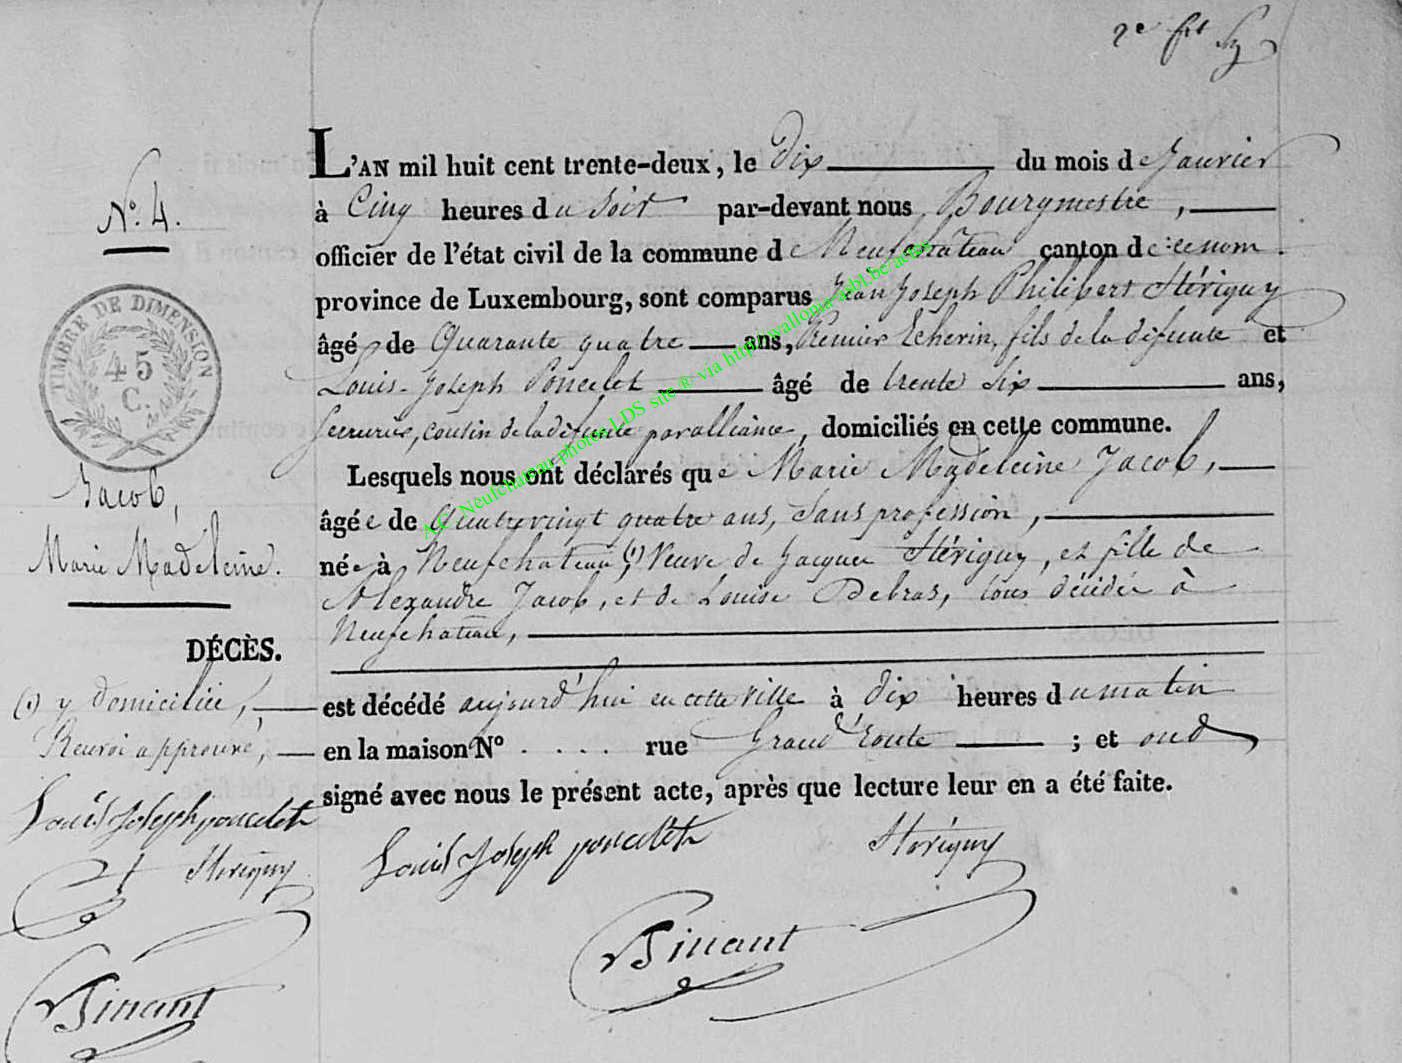 2e
N° 4.
TIMBRE DE DIMENSION
45
C.
Jacob,
Marie Madeleine.
DÉCÈS.
(1) y domiciliée,
Renvoi approuvé,
Louis Joseph poncelet
Stévigny
Binant
L'AN mil huit cent trente-deux, le Dix du mois de Janvier
à Cinq heures du soir par-devant nous Bourgmestre,
officier de l'état civil de la commune de Neufchateau canton de ce nom.
province de Luxembourg, sont comparus Jean Joseph Philibert Stévigny
âgé de Quarante quatre ans, Premier Echevin, fils de la défunte et
Louis-Joseph Poncelet âgé de trente six ans,
Serrurier, cousin de la défunte par alliance, domiciliés en cette commune.
Lesquels nous ont déclarés que Marie Madeleine Jacob,
âgée de Quatrevingt quatre ans, Sans profession,
née à Neufchateau, (1) Veuve de Jacques Stévigny, et fille de
Alexandre Jacob, et de Louise Debras, tous décédés à
Neufchateau,
est décédé aujourd'hui en cette ville à dix heures du matin
en la maison N° . . . . rue Grand'route ; et ond
signé avec nous le présent acte, après que lecture leur en a été faite.
Louis Joseph poncelet Stévigny
Binant
A.C. Neufchateau photos LDS site ® via http://wallonia-asbl.be/actes